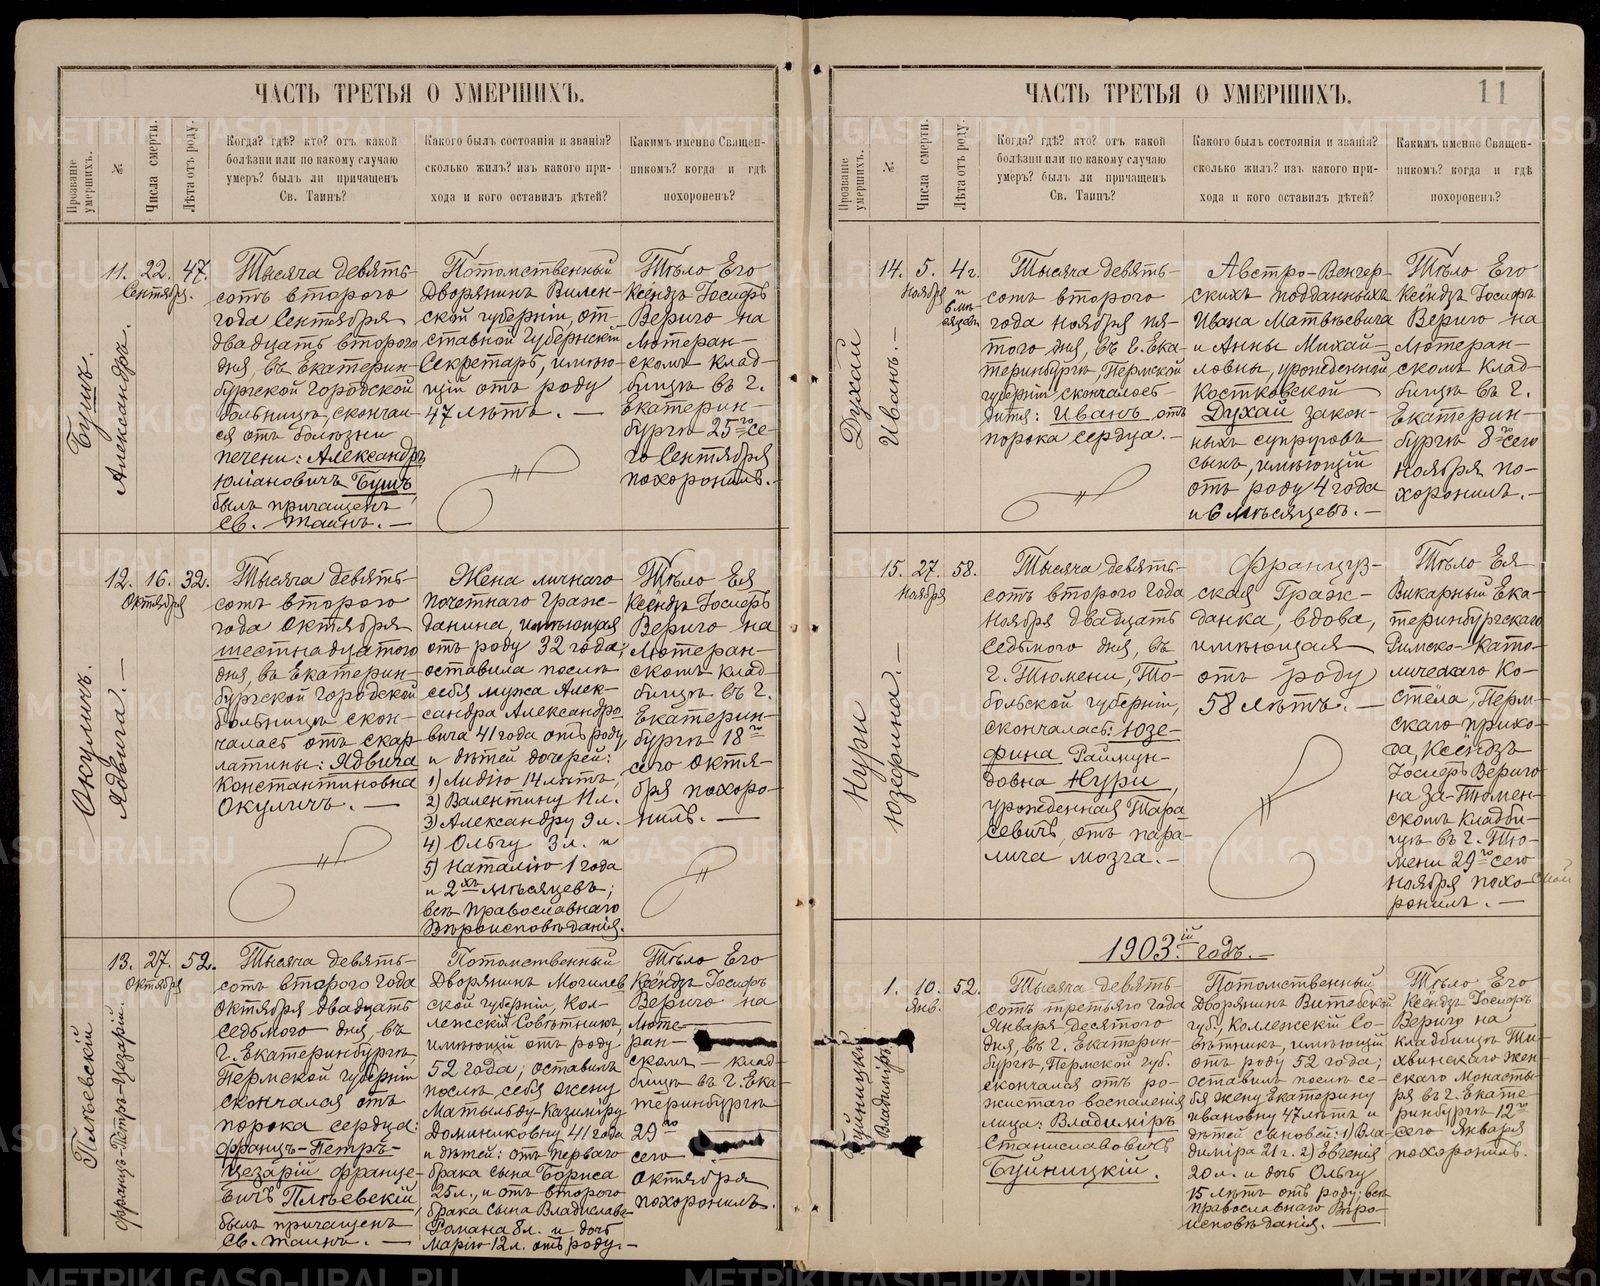 ЧАСТЬ ТРЕТЬЯ О УМЕРШИХЪ.
Прозваніе умершихъ.
№.
Числа смерти.
Лѣта отъ роду.
Когда? гдѣ? кто? отъ какой
болѣзни или по какому случаю
умеръ? былъ ли причащенъ
Св. Таинъ?
Какого былъ состоянія и званія?
сколько жилъ? изъ какого при-
хода и кого оставилъ дѣтей?
Какимъ именно Священ-
никомъ? когда и гдѣ
похороненъ?
Бушъ.
Александръ.
11. 22. 47.
Сентября.
Тысяча девять-
сотъ второго
года Сентября
двадцать второго
дня, въ Екатерин-
бургской городской
больницѣ, скончал-
ся отъ болѣзни
печени: Александръ
Юліановичъ Бушъ
былъ причащенъ
Св. Таинъ. —
Потомственный
Дворянинъ Вилен-
ской губерніи, от-
ставной Губернскій
Секретарь, имѣю-
щій отъ роду
47 лѣтъ. —
Тѣло Его
Ксёндзъ Іосифъ
Вериго на
Лютеран-
скомъ клад-
бищѣ въ г.
Екатерин-
бургѣ 25го се-
го Сентября
похоронилъ. —
Окуличъ.
Ядвига. —
12. 16. 32.
Октября
Тысяча девять-
сотъ второго
года Октября
шестнадцатого
дня, въ Екатерин-
бургской городской
больницѣ скон-
чалась отъ скар-
латины: Ядвига
Константиновна
Окуличъ. —
Жена личнаго
почетнаго Граж-
данина, имѣющая
отъ роду 32 года;
оставила послѣ
себя мужа Алек-
сандра Александро-
вича 41 года отъ роду
и дѣтей дочерей:
1) Лидію 14 лѣтъ,
2) Валентину 11 л.
3) Александру 9 л.
4) Ольгу 3 л. и
5) Наталію 1 года
и 2хъ мѣсяцевъ;
всѣ Православнаго
Вѣроисповѣданія.
Тѣло Ея
Ксёндзъ Іосифъ
Вериго на
Лютеран-
скомъ клад-
бищѣ въ г.
Екатерин-
бургѣ 18го
сего Октя-
бря похоро-
нилъ. —
Плѣевскій
Францъ-Петръ-Цезарій.
13. 27. 52.
Октября
Тысяча девять-
сотъ второго года
Октября двадцать
седьмого дня, въ
г. Екатеринбургѣ,
Пермской губерніи
скончался отъ
порока сердца:
Францъ-Петръ-
Цезарій Франце-
вичъ Плѣевскій,
былъ причащенъ
Св. Таинъ. —
Потомственный
Дворянинъ Могилев-
ской губерніи, Кол-
лежскій Совѣтникъ,
имѣющій отъ роду
52 года; оставилъ
послѣ себя жену
Матыльду-Казиміру
Доминиковну 41 года
и дѣтей: отъ перваго
брака сына Бориса
25 л., и отъ второго
брака сына Владислава
Романа 8 л. и дочь
Марію 12 л. отъ роду. —
Тѣло Его
Ксёндзъ Іосифъ
Вериго на
Люте-
ран-
скомъ клад-
бищѣ въ г. Ека-
теринбургѣ
29го
сего
Октября
похоронилъ.
ЧАСТЬ ТРЕТЬЯ О УМЕРШИХЪ.
11
Прозваніе умершихъ.
№.
Числа смерти.
Лѣта отъ роду.
Когда? гдѣ? кто? отъ какой
болѣзни или по какому случаю
умеръ? былъ ли причащенъ
Св. Таинъ?
Какого былъ состоянія и званія?
сколько жилъ? изъ какого при-
хода и кого оставилъ дѣтей?
Какимъ именно Священ-
никомъ? когда и гдѣ
похороненъ?
Духай
Иванъ. —
14. 5. 4 г.
Ноября и
6 мѣ-
сяцевъ
Тысяча девять-
сотъ второго
года ноября пя-
того дня, въ г. Ека-
теринбургѣ, Пермской
губерніи скончалось
дитя: Иванъ отъ
порока сердца. —
Австро-Венгер-
скихъ подданныхъ
Ивана Матвѣевича
и Анны Михай-
ловны, урожденной
Костковской
Духай закон-
ныхъ супруговъ
сынъ, имѣющій
отъ роду 4 года
и 6 мѣсяцевъ. —
Тѣло Его
Ксёндзъ Іосифъ
Вериго на
Лютеран-
скомъ Клад-
бищѣ въ г.
Екатерин-
бургѣ 8го сего
Ноября по-
хоронилъ. —
Нури
Юзефина. —
15. 27. 58.
Ноября
Тысяча девять-
сотъ второго года
Ноября двадцать
седьмого дня, въ
г. Тюмени, То-
больской губерніи,
скончалась: Юзе-
фина Раймун-
довна Нури,
урожденная Тара-
севичъ, отъ пара-
лича мозга. —
Француз-
ская Граж-
данка, вдова,
имѣющая
отъ роду
58 лѣтъ. —
Тѣло Ея
Викарный Ека-
теринбургскаго
Римско-Като-
лическаго Ко-
стёла, Перм-
скаго прихо-
да, Ксёндзъ
Іосифъ Вериго
на За-Тюмен-
скомъ кладби-
щѣ въ г. Тю-
мени 29го сего
Ноября похо-
ронилъ. —
1903й годъ. —
Буйницкій
Владиміръ.
1. 10. 52.
Янв.
Тысяча девять-
сотъ третьяго года
Января десятого
дня, въ г. Екатерин-
бургѣ, Пермской губ.
скончался отъ ро-
жистаго воспаленія
лица: Владиміръ
Станиславовичъ
Буйницкій.
Потомственный
Дворянинъ Витебской
губ., Коллежскій Со-
вѣтникъ, имѣющій
отъ роду 52 года;
оставилъ послѣ се-
бя жену Екатерину
Ивановну 47 лѣтъ и
дѣтей сыновей: 1) Вла-
диміра 21 г. 2) Евгенія
20 л. и дочь Ольгу
15 лѣтъ отъ роду; всѣ
православнаго Вѣро-
исповѣданія. —
Тѣло Его
Ксёндзъ Іосифъ
Вериго на
Кладбищѣ Ти-
хвинскаго Жен-
скаго Монасты-
ря въ г. Екате-
ринбургѣ 12го
сего Января
похоронилъ.
METRIKI.GASO-URAL.RU